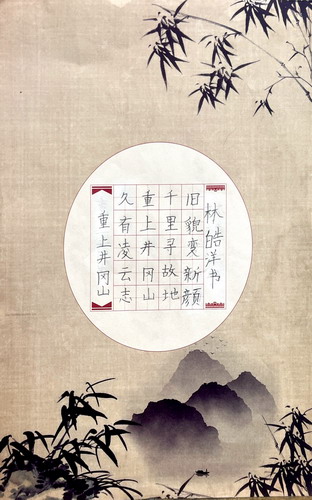 重上井冈山
久有凌云志
重上井冈山
千里寻故地
旧貌变新顔
林皓洋书